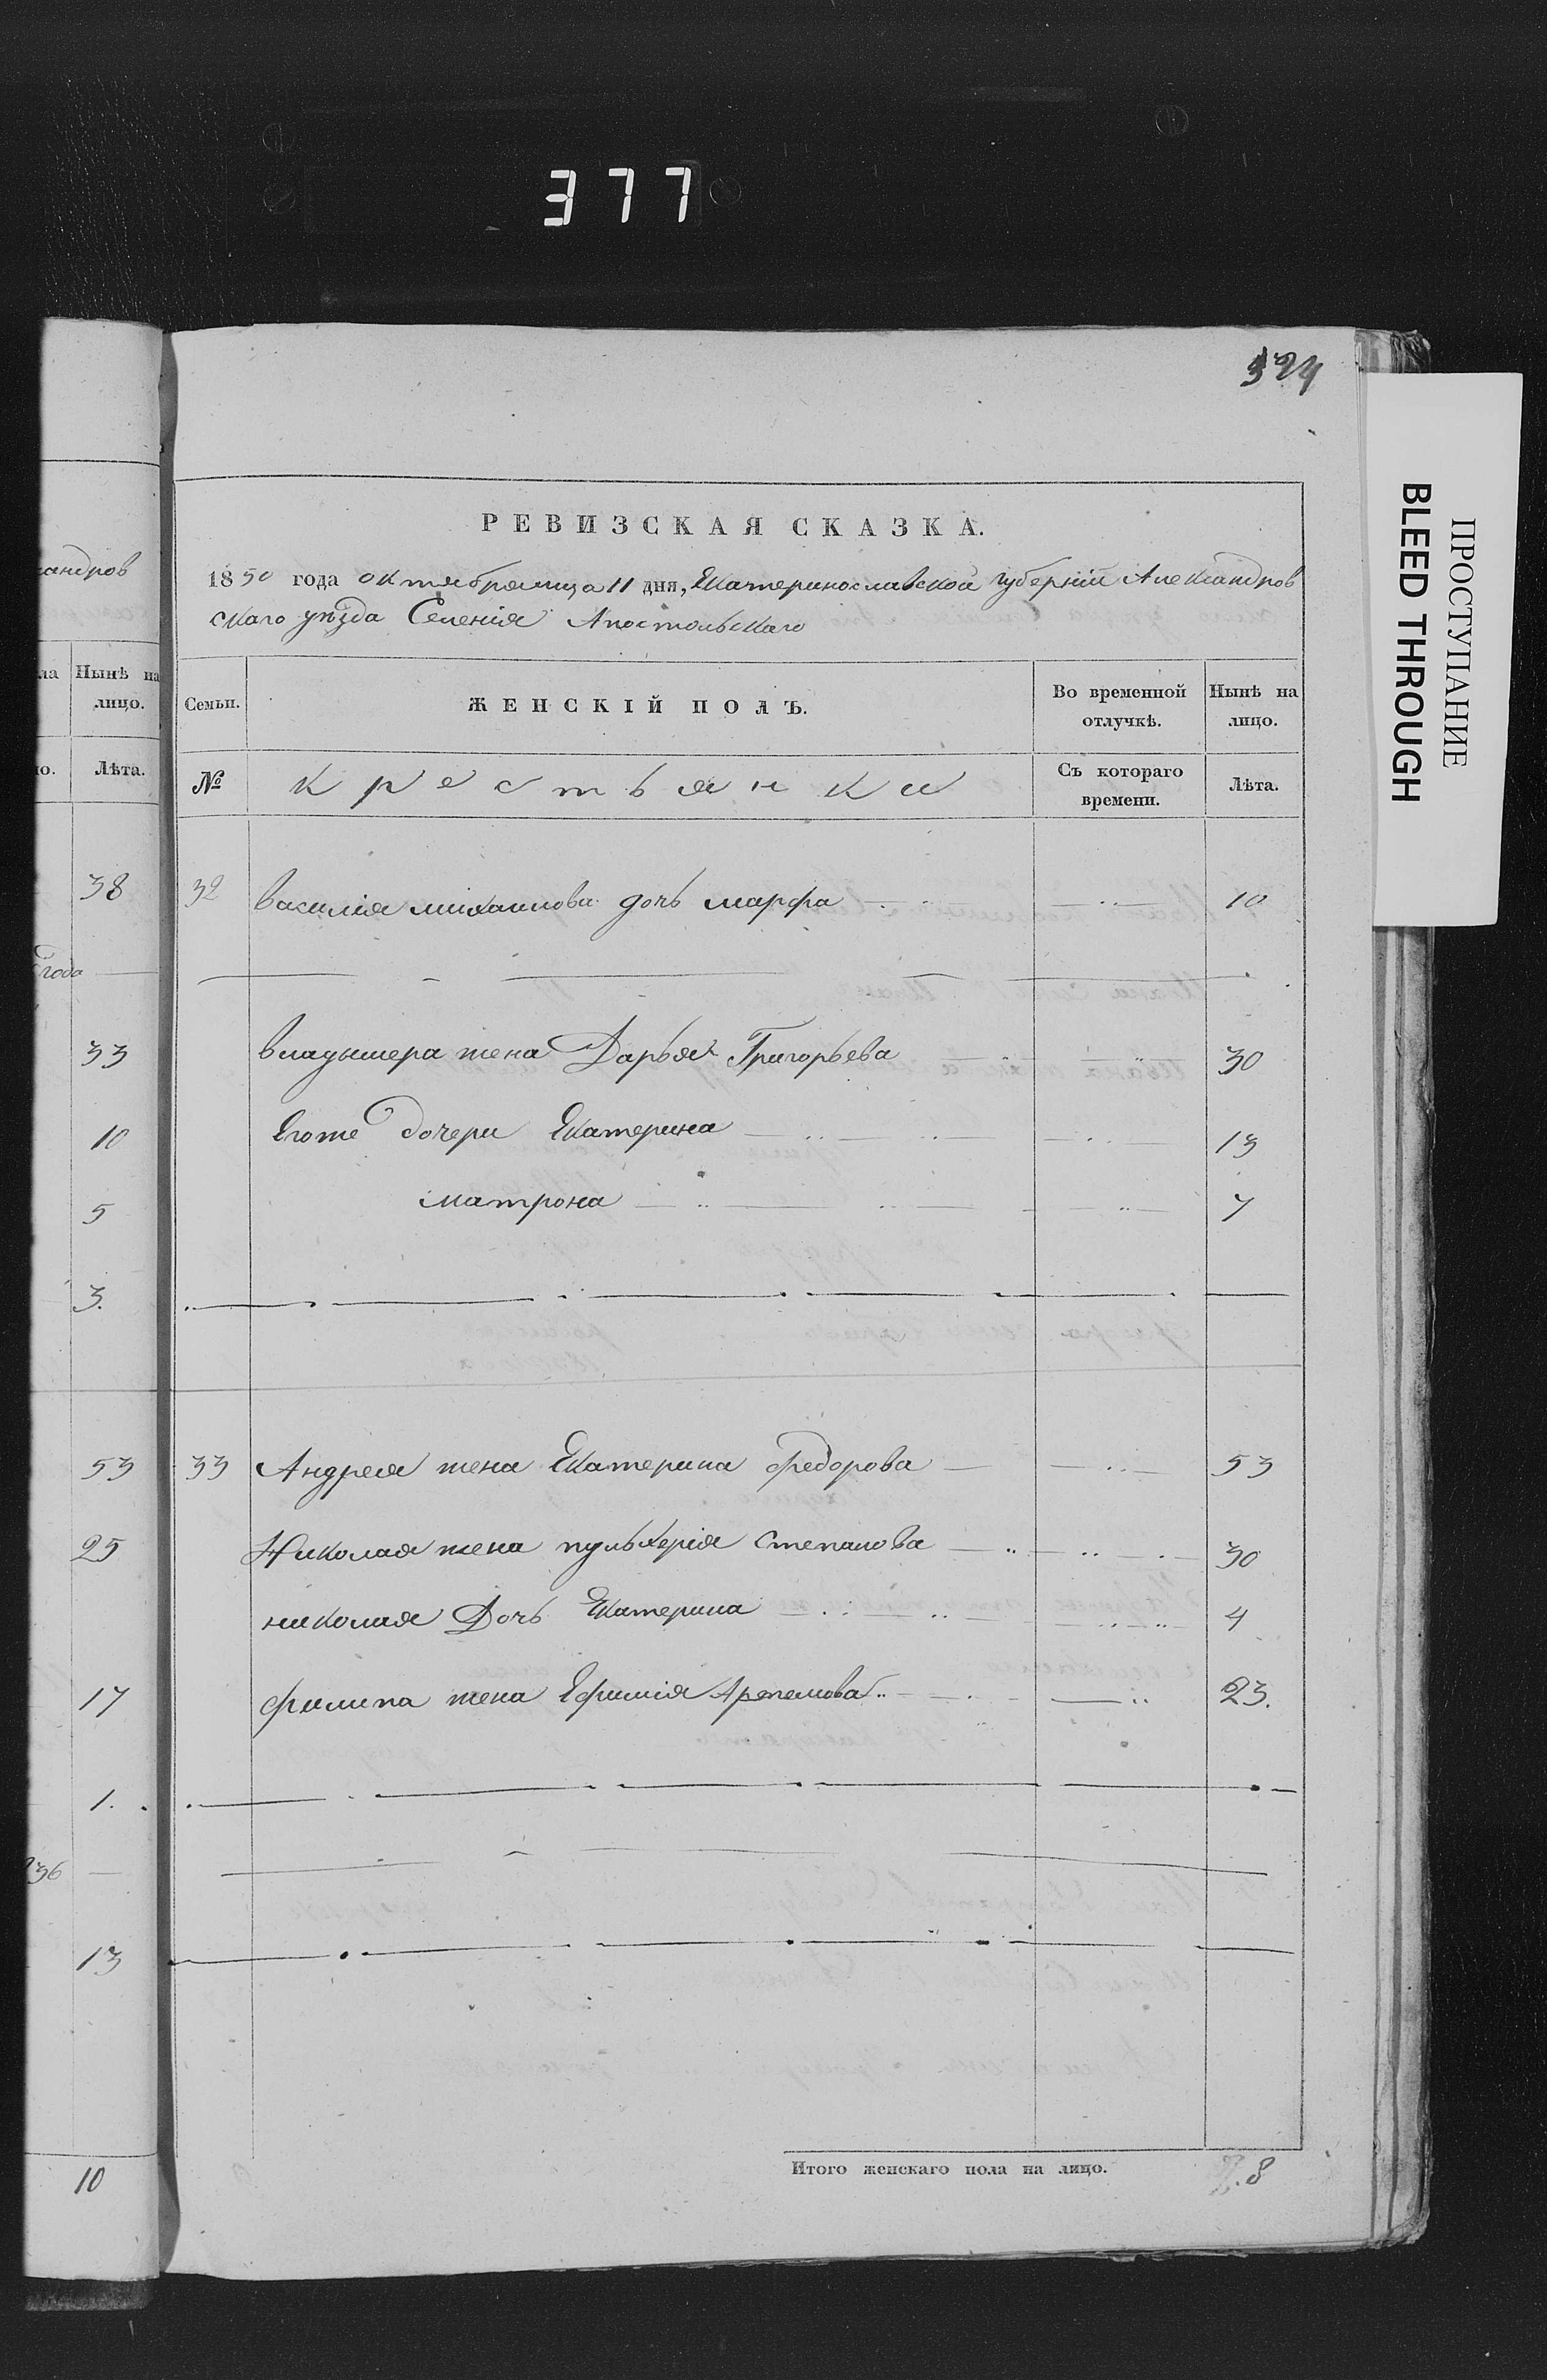 377
324
ПРОСТУПАНИЕ
BLEED THROUGH
РЕВИЗСКАЯ СКАЗКА.
1850 года октября мца 11 дня, Екатеринославской губернiи Александров
скаго уѣзда Селенiя Апостольскаго
Семьи.
ЖЕНСКІЙ ПОЛЪ.
Во временной отлучкѣ.
Нынѣ на лицо.
№
крестьянки
Съ котораго времени.
Лѣта.
32 Василiя михаилова дочь марфа 10
владымера жена Дарья Григорьева 30
Егоже дочери Екатерина 13
матрона 7
33 Андрея жена Екатерина Федорова 53
Николая жена пульхерiя Степанова 30
николая Дочь Екатерина 4
филипа жена Ефимiя Артемова 23.
Итого женскаго пола на лицо. 8
сандров
ла
Нынѣ на лицо.
ло.
Лѣта.
38
года
33
10
5
3.
53
25
17
1.
36
13
10